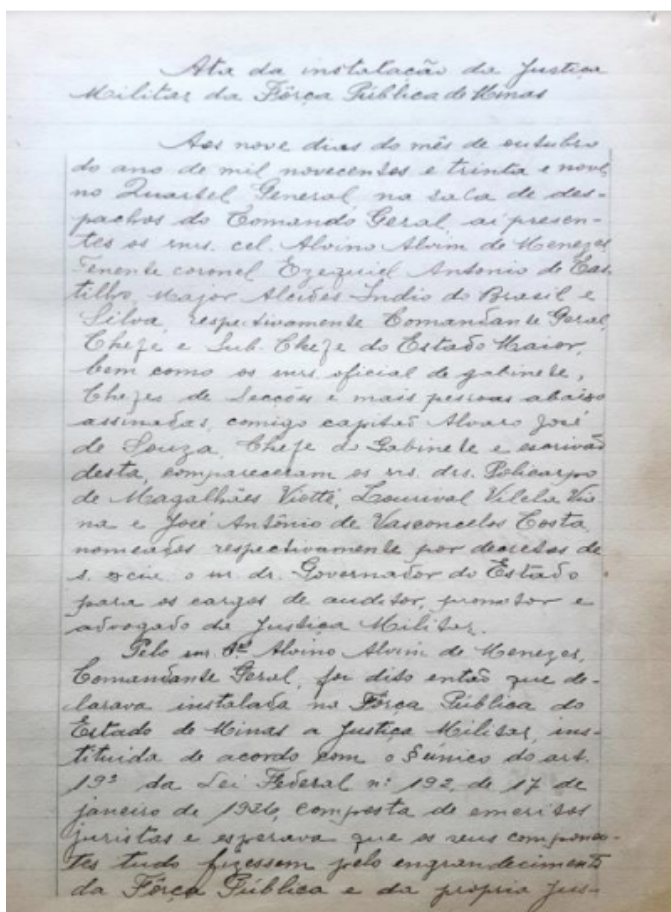 Ata da instalação da Justiça
Militar da Fôrça Pública de Minas
Aos nove dias do mês de outubro
do ano de mil novecentos e trinta e nove
no Quartel General, na sala de des-
pachos do Comando Geral, aí presen-
tes os snrs. cel. Alvino Alvim de Menezes,
Tenente coronel Ezequiel Antonio de Cas-
tilho, Major Alcides Indio do Brasil e
Silva, respectivamente Comandante Geral,
Chefe e Sub. Chefe do Estado Maior,
bem como os snrs. oficial de gabinete,
Chefes de Secções e mais pessoas abaixo
assinadas, comigo capitão Alvaro José
de Souza, Chefe do Gabinete e escrivão
desta, compareceram os srs. drs. Policarpo
de Magalhães Viotti, Lourival Vilela Via
na e José Antônio de Vasconcelos Costa,
nomeados respectivamente por decretos de
s. excia. o sr. dr. Governador do Estado
para os cargos de auditor, promotor e
advogado da Justiça Militar.
Pelo snr. Cel Alvino Alvim de Menezes,
Comandante Geral, foi dito então que de-
larava instalada na Fôrça Pública do
Estado de Minas a Justiça Militar, ins-
tituida de acordo com o § único do art.
19º da Lei Federal nº 192, de 17 de
janeiro de 1936, composta de emeritos
juristas e esperava que os seus componen-
tes tudo fizessem pelo engrandecimento
da Fôrça Pública e da propria Jus-